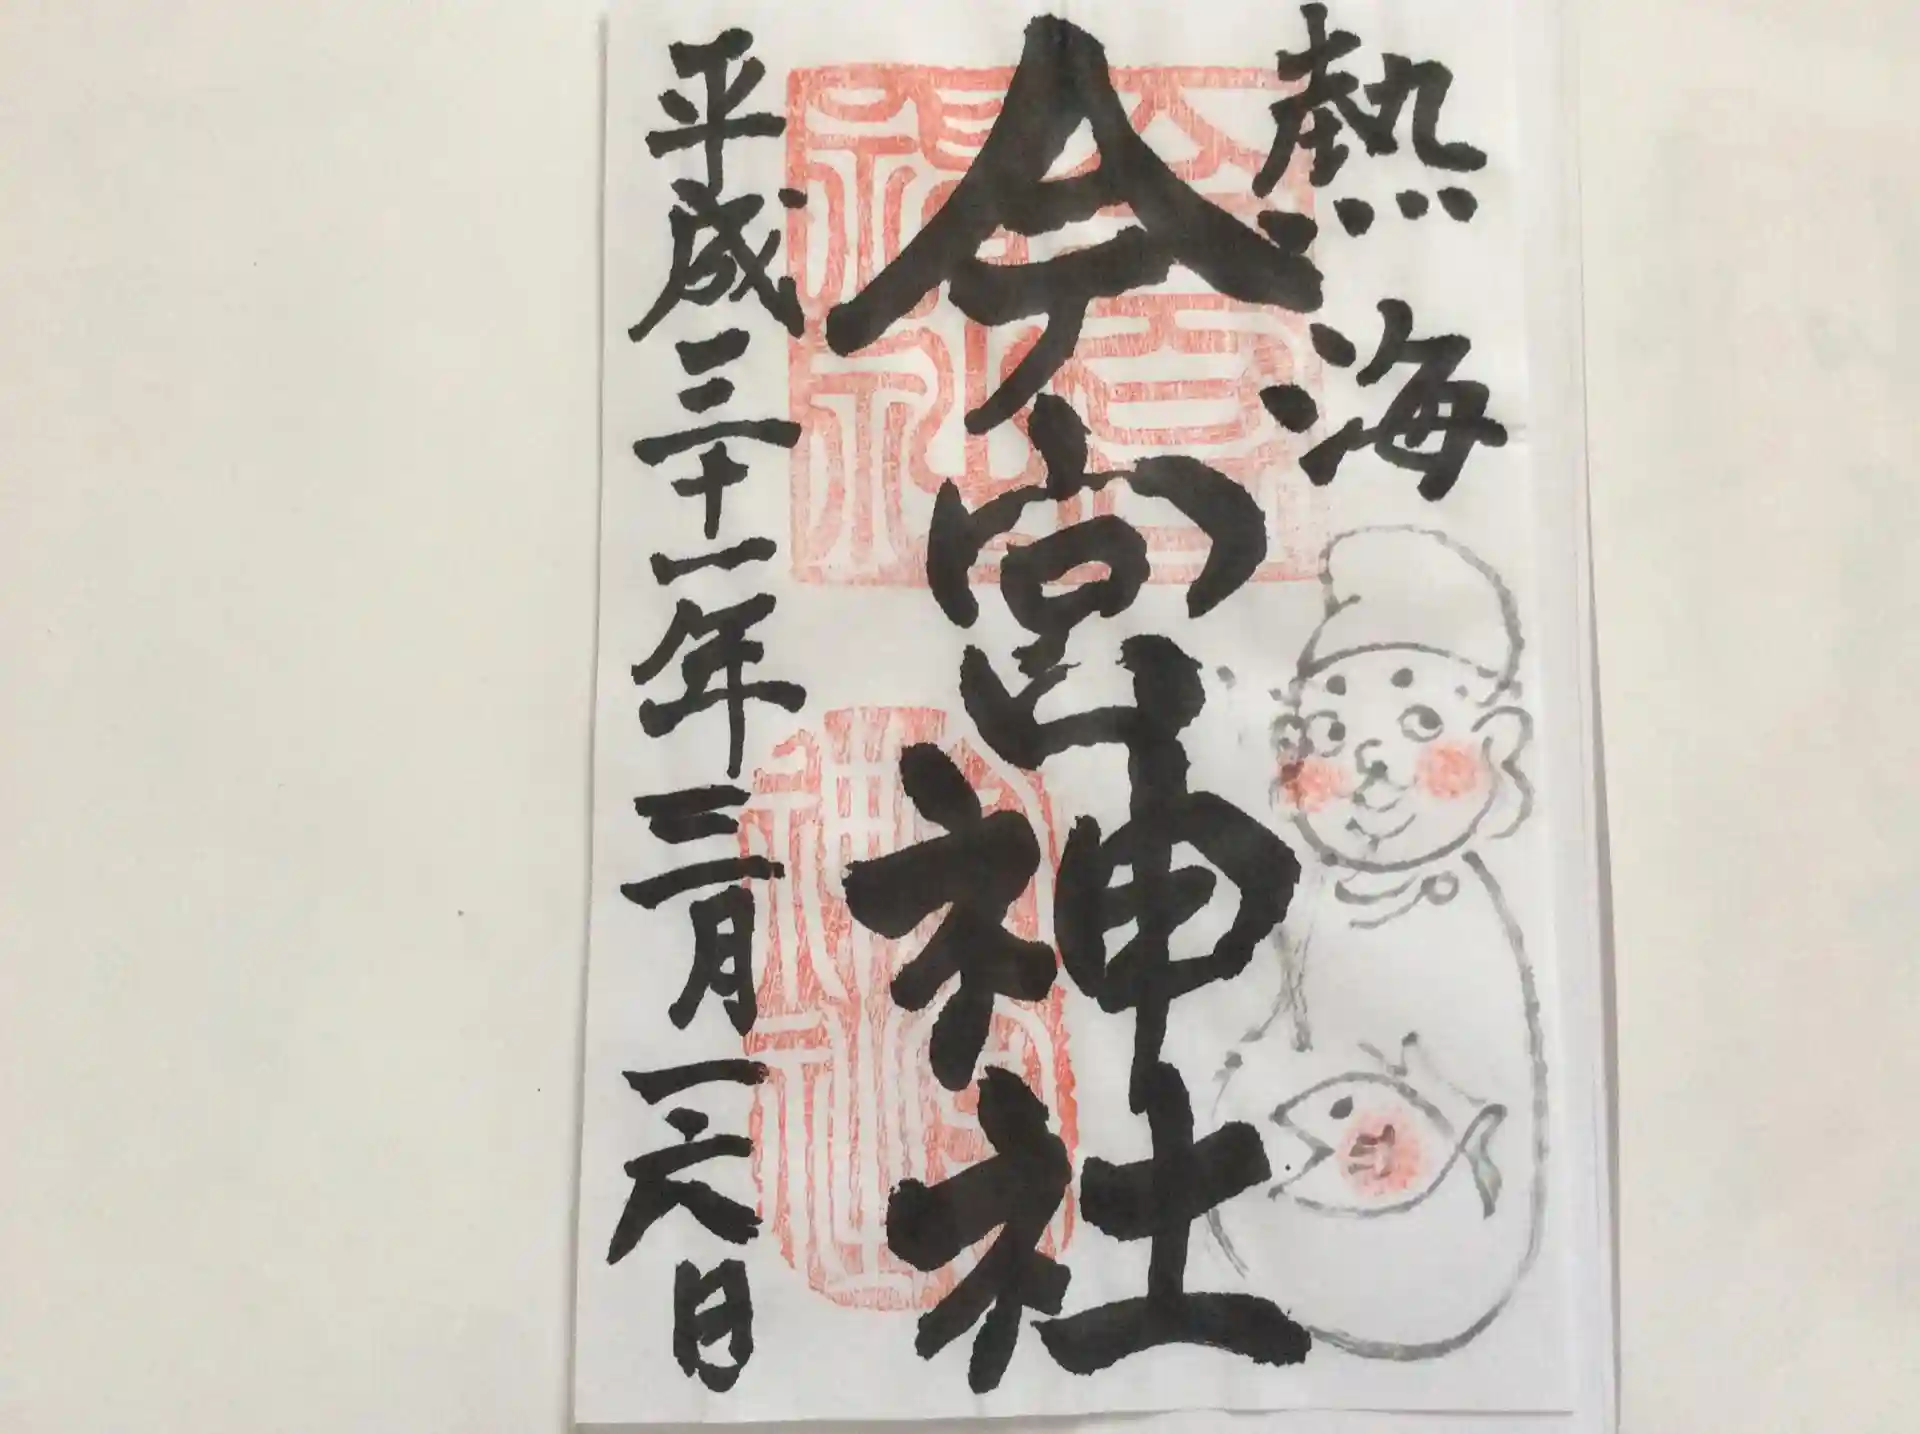 熱海
今宮神社
平成三十一年三月一六日